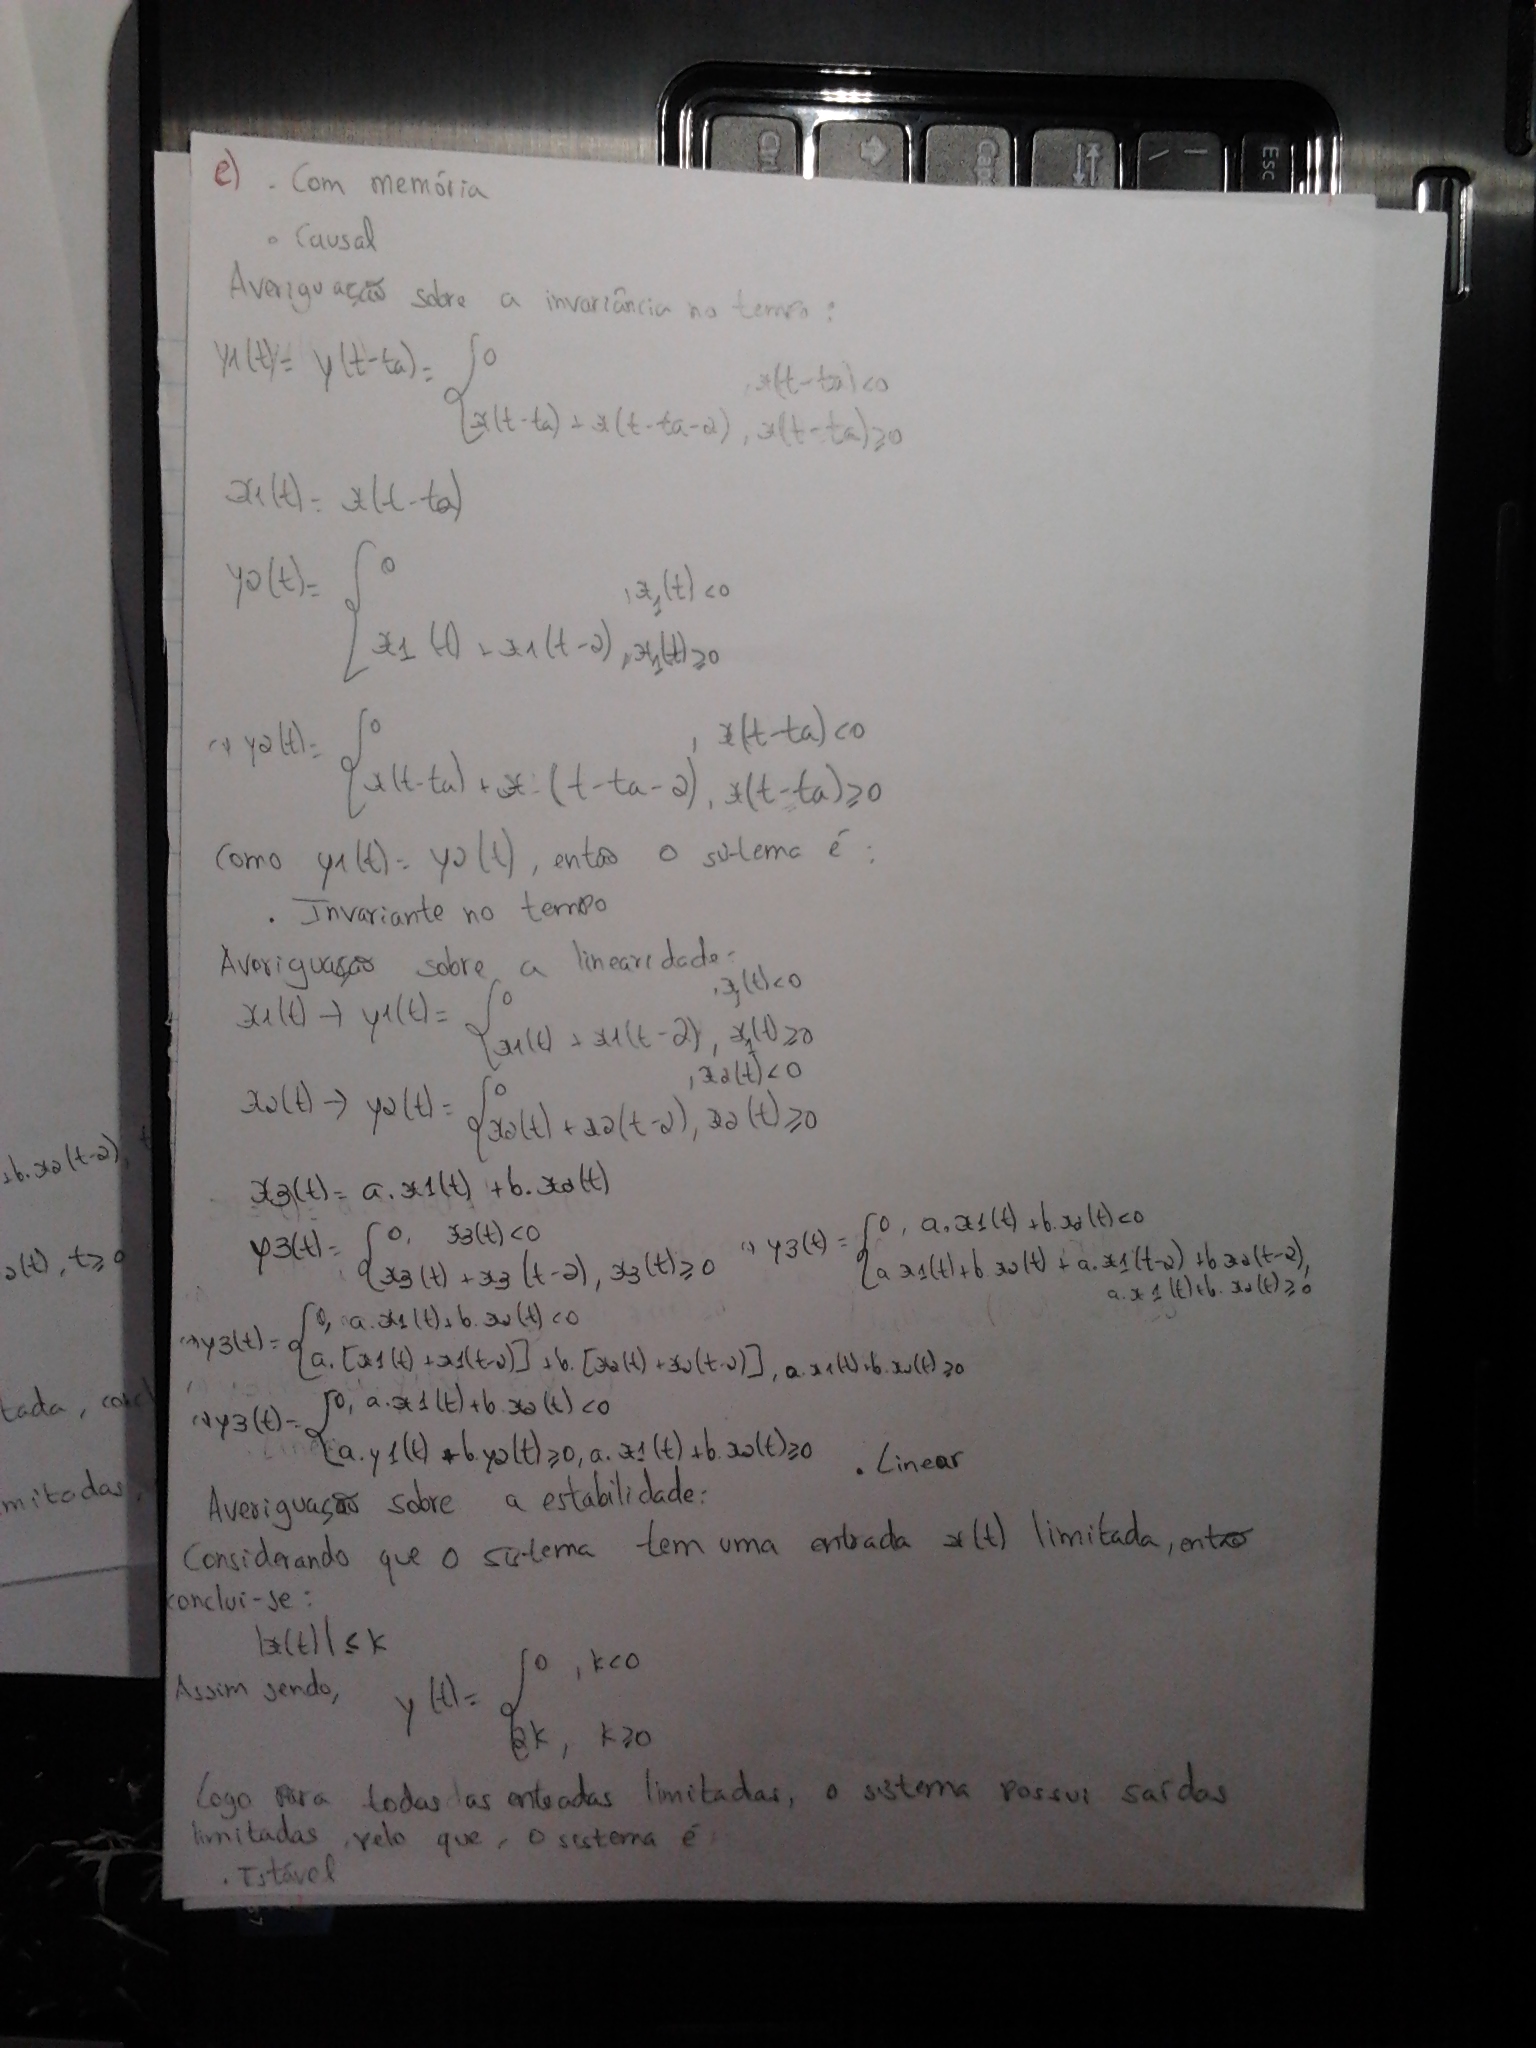 Ctrl
Caps
Esc
e) . Com memória
. Causal
Averiguação sobre a invariância no tempo:
y1(t) = y(t-ta) = { 0 , x(t-ta) < 0
x(t-ta) + x(t-ta-2), x(t-ta) ≥ 0
x1(t) = x(t-ta)
y2(t) = { 0 , x1(t) < 0
x1(t) + x1(t-2), x1(t) ≥ 0
(=) y2(t) = { 0 , x(t-ta) < 0
x(t-ta) + x(t-ta-2), x(t-ta) ≥ 0
Como y1(t) = y2(t), então o sistema é:
. Invariante no tempo
Averiguação sobre a linearidade:
x1(t) → y1(t) = { 0 , x1(t) < 0
x1(t) + x1(t-2), x1(t) ≥ 0
x2(t) → y2(t) = { 0 , x2(t) < 0
x2(t) + x2(t-2), x2(t) ≥ 0
x3(t) = a.x1(t) + b.x2(t)
y3(t) = { 0, x3(t) < 0
x3(t) + x3(t-2), x3(t) ≥ 0
(=) y3(t) = { 0, a.x1(t) + b.x2(t) < 0
a x1(t) + b.x2(t) + a.x1(t-2) + b x2(t-2),
a.x1(t) + b.x2(t) ≥ 0
(=) y3(t) = { 0, a.x1(t) + b.x2(t) < 0
a.[x1(t) + x1(t-2)] + b.[x2(t) + x2(t-2)], a.x1(t) + b.x2(t) ≥ 0
(=) y3(t) = { 0, a.x1(t) + b.x2(t) < 0
a.y1(t) + b.y2(t) ≥ 0, a.x1(t) + b.x2(t) ≥ 0 . Linear
Averiguação sobre a estabilidade:
Considerando que o sistema tem uma entrada x(t) limitada, então
conclui-se:
|x(t)| ≤ k
Assim sendo, y(t) = { 0 , k < 0
2k, k ≥ 0
Logo para todas as entradas limitadas, o sistema possui saídas
limitadas, pelo que, o sistema é
. Estável
+b.x2(t-2),
2(t), t ≥ 0
tada, conc
mitadas,